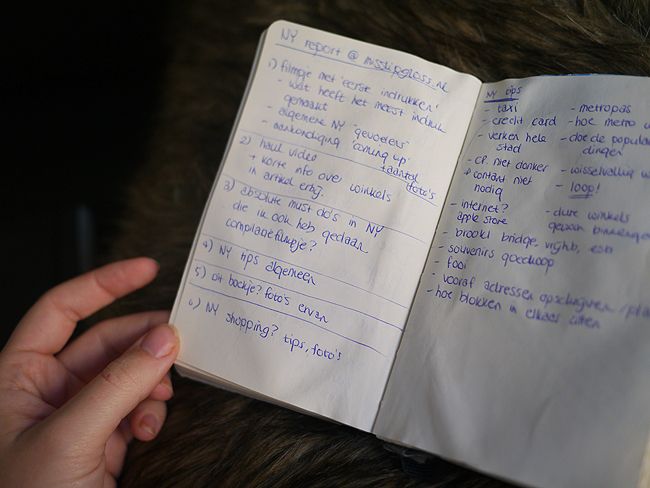 NY report @ misslipgloss.nl
1) filmpje met 'eerste indrukken'
- wat heeft het meest indruk
gemaakt
- algemene NY 'gevoelens'
- aankondiging 'coming up'
2) haul video
aantal
foto's
+ korte info over winkels
in artikel erbij.
3) absolute must do's in NY
die ik ook heb gedaan
compilatiefilmpje?
4) NY tips algemeen
5) dit boekje? foto's ervan
6) NY shopping? tips, foto's
NY tips
- taxi
- credit card
- verken hele
stad
- CP niet donker
+ contant niet
nodig
- internet?
apple store
- brookl bridge, highl, esb
- souvenirs goedkoop
- fooi
- vooraf adressen opschrijven
- hoe blokken in elkaar zitten
- metropas
- hoe metro
- doe de populaire
dingen
- wisselvallig
- loop!
- dure winkels
gewoon